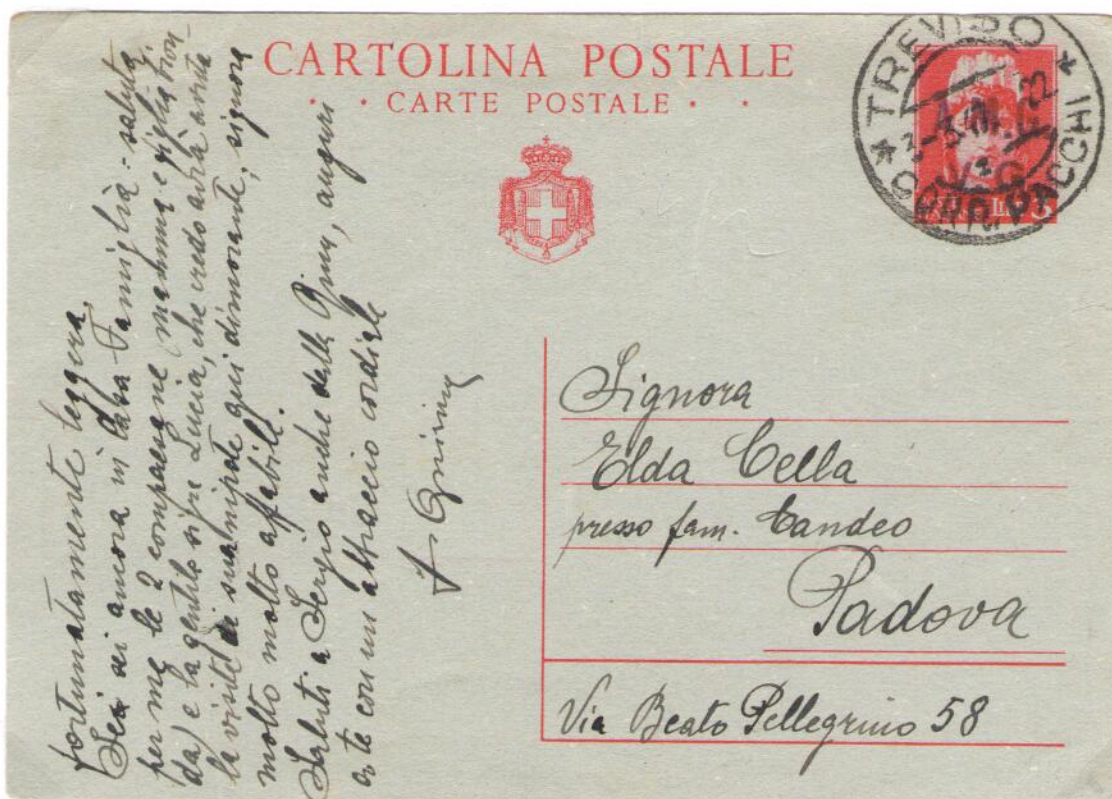 CARTOLINA POSTALE
CARTE POSTALE
TREVISO
CORR. PACCHI
fortunatamente leggera.
Sei ancora in Casa-Famiglia - saluta
per me le 2 compagne (mamma e figlia bion-
da) e la gentile sig.ra Lucia, che credo avrà avuta
la visita di sua nipote qui dimorante, signora
molto molto affabile.
Saluti a Sergio anche della Gina, auguri
a te con un abbraccio cordiale
Signora
Elda Cella
presso fam. Candeo
Padova
Via Beato Pellegrino 58